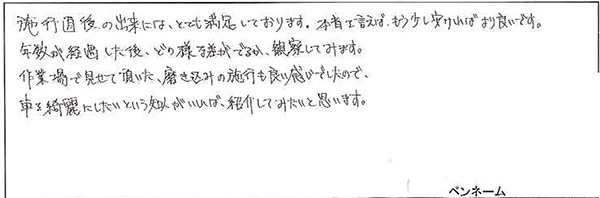 施行直後の出来には、とても満足しております。本音で言えば、もう少し安ければより良いです。
年数が経過した後、どの様な差がでるか、観察してみます。
作業場で見せて頂いた、磨き込みの施行も良い感じでしたので、
車を綺麗にしたいという知人がいれば、紹介してみたいと思います。
ペンネーム